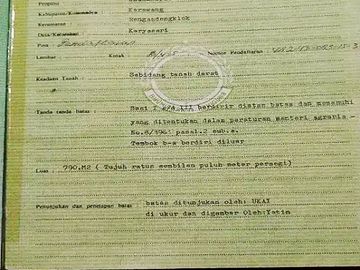 Propinsi
Kabupaten/Kotamadya : Karawang
Kecamatan : Rengasdengklok
Desa/Kelurahan : Karyasari
Peta :
Lembar : Kotak : Nomor Pendaftaran :
Keadaan Tanah : Sebidang tanah darat
Tanda tanda batas : berdiri diatas batas dan memenuhi
yang ditentukan dalam peraturan menteri agraria -
No.8/1961 pasal.2 sub.e.
Tembok b-a berdiri diluar
Luas : 790.M2 ( Tujuh ratus sembilan puluh meter persegi)
Penunjukan dan penetapan batas : batas ditunjukan oleh: UKAT
di ukur dan digambar Oleh:Yatim